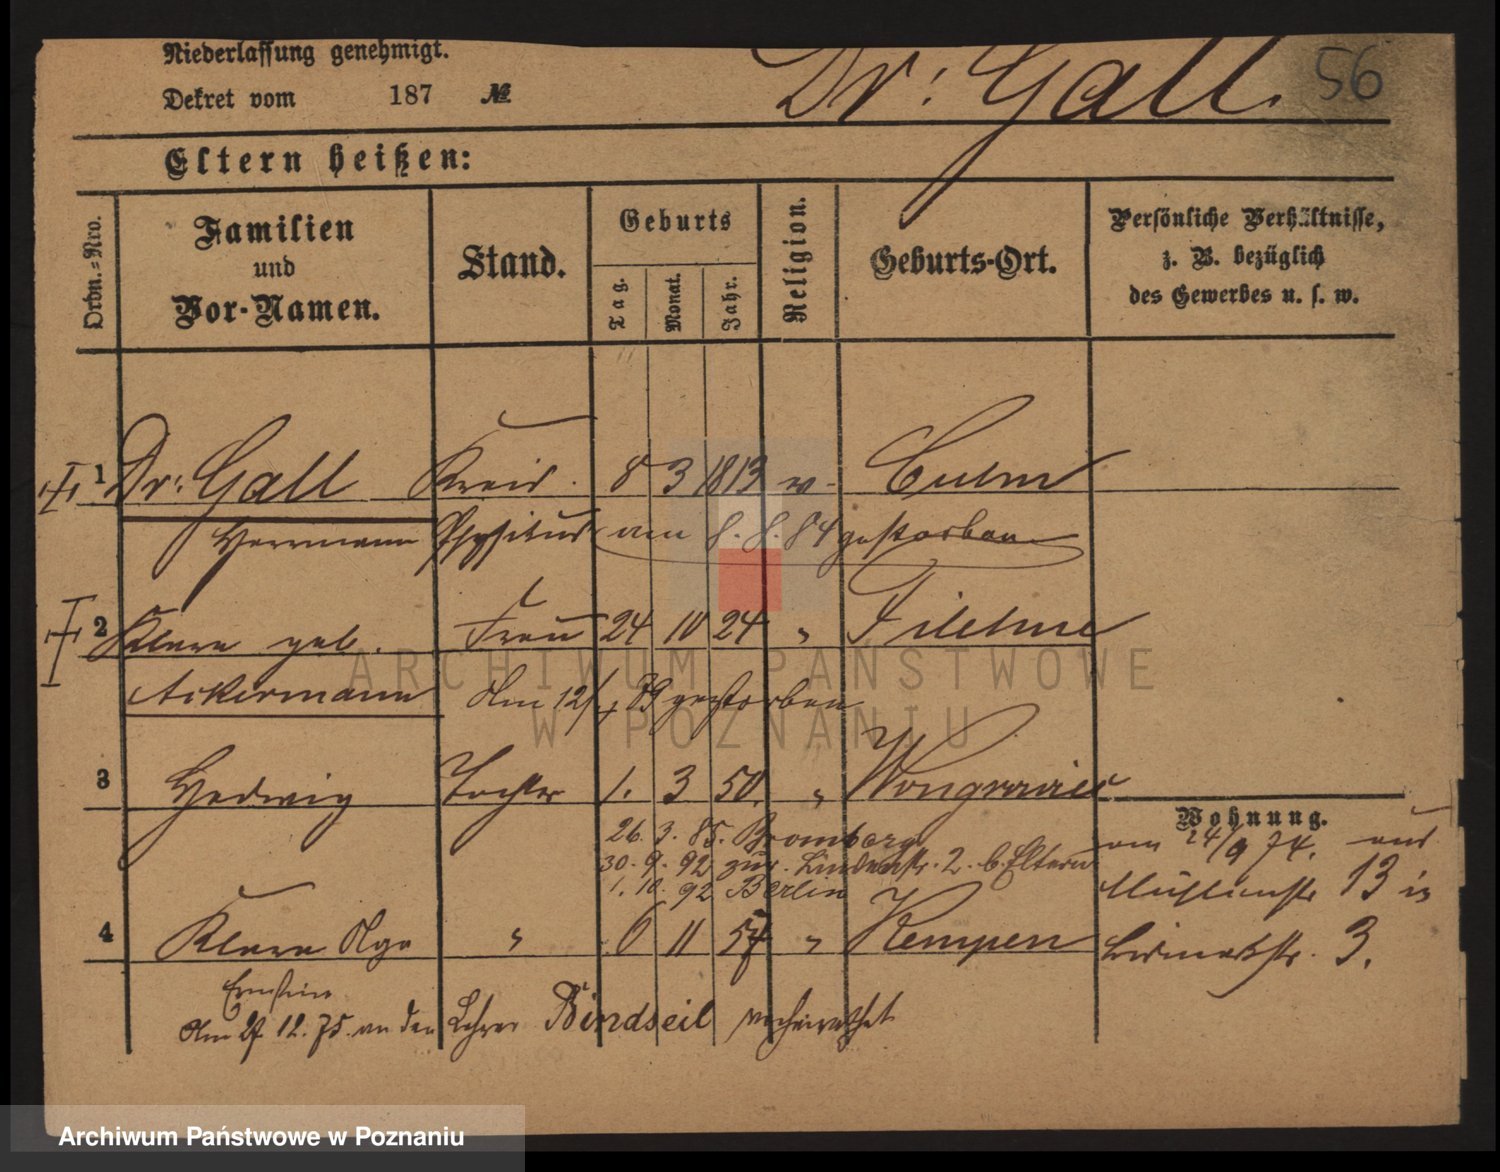 Niederlassung genehmigt.
Dekret vom 187 №
Dr: Gall. 56
Eltern heißen:
Ordn.-Nro.
Familien und Vor-Namen.
Stand.
Geburts
Tag. Monat. Jahr.
Religion.
Geburts-Ort.
Persönliche Verhältnisse,
z. B. bezüglich
des Gewerbes u. s. w.
1 Dr: Gall Kreis- 8 3 1813 ev- Culm
Herrmann Physikus am 8. 8. 84 gestorben
2 Klara geb. Frau 24 10 24 " Filehne
Ackermann Am 12/4 89 gestorben
3 Hedwig Tochter 1. 3 50. " Wongrowiec
Wohnung.
26. 3. 85. Bromberg
30. 9. 92 zur. Lindenstr. 2. b. Eltern
1. 10. 92 Berlin
am 24/9 74. aus
Mühlenstr 13 in
Bismarkstr. 3.
4 Klara Olga " 6 11 57 " Kempen
Ernestine
Am 27 12. 75. an den Lehrer Bindseil verheirathet
ARCHIWUM PAŃSTWOWE
W POZNANIU
Archiwum Państwowe w Poznaniu